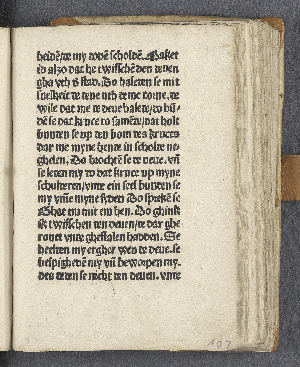 heidē/te my dodē scholdē. Maket
id alzo dat he twisschē den deuen
gha vth d̄ stad. Do haleden se mit
snelheit de deue vth deme torne. de
wile dat me de deue halede/do bū-
dē se dat kruce to samēde/dat holt
bunden se vp den bom des kruces
dar me myne hende in scholde ne-
ghelen. Do brochtē se de deue. vñ
se leden my do dat kruce up myne
schulderen/vnde ein seel bunden se
my vmme myne syden Do sprekē se
Gha nu mit em hen. Do ghink
ik twisschen den deuen/de dar ghe
rouet vnde ghestalen hadden. Se
heelden my ergher wen de deue. se
bespigheden my vñ bewarpen my.
des deden se nicht den deuen. vnde
107